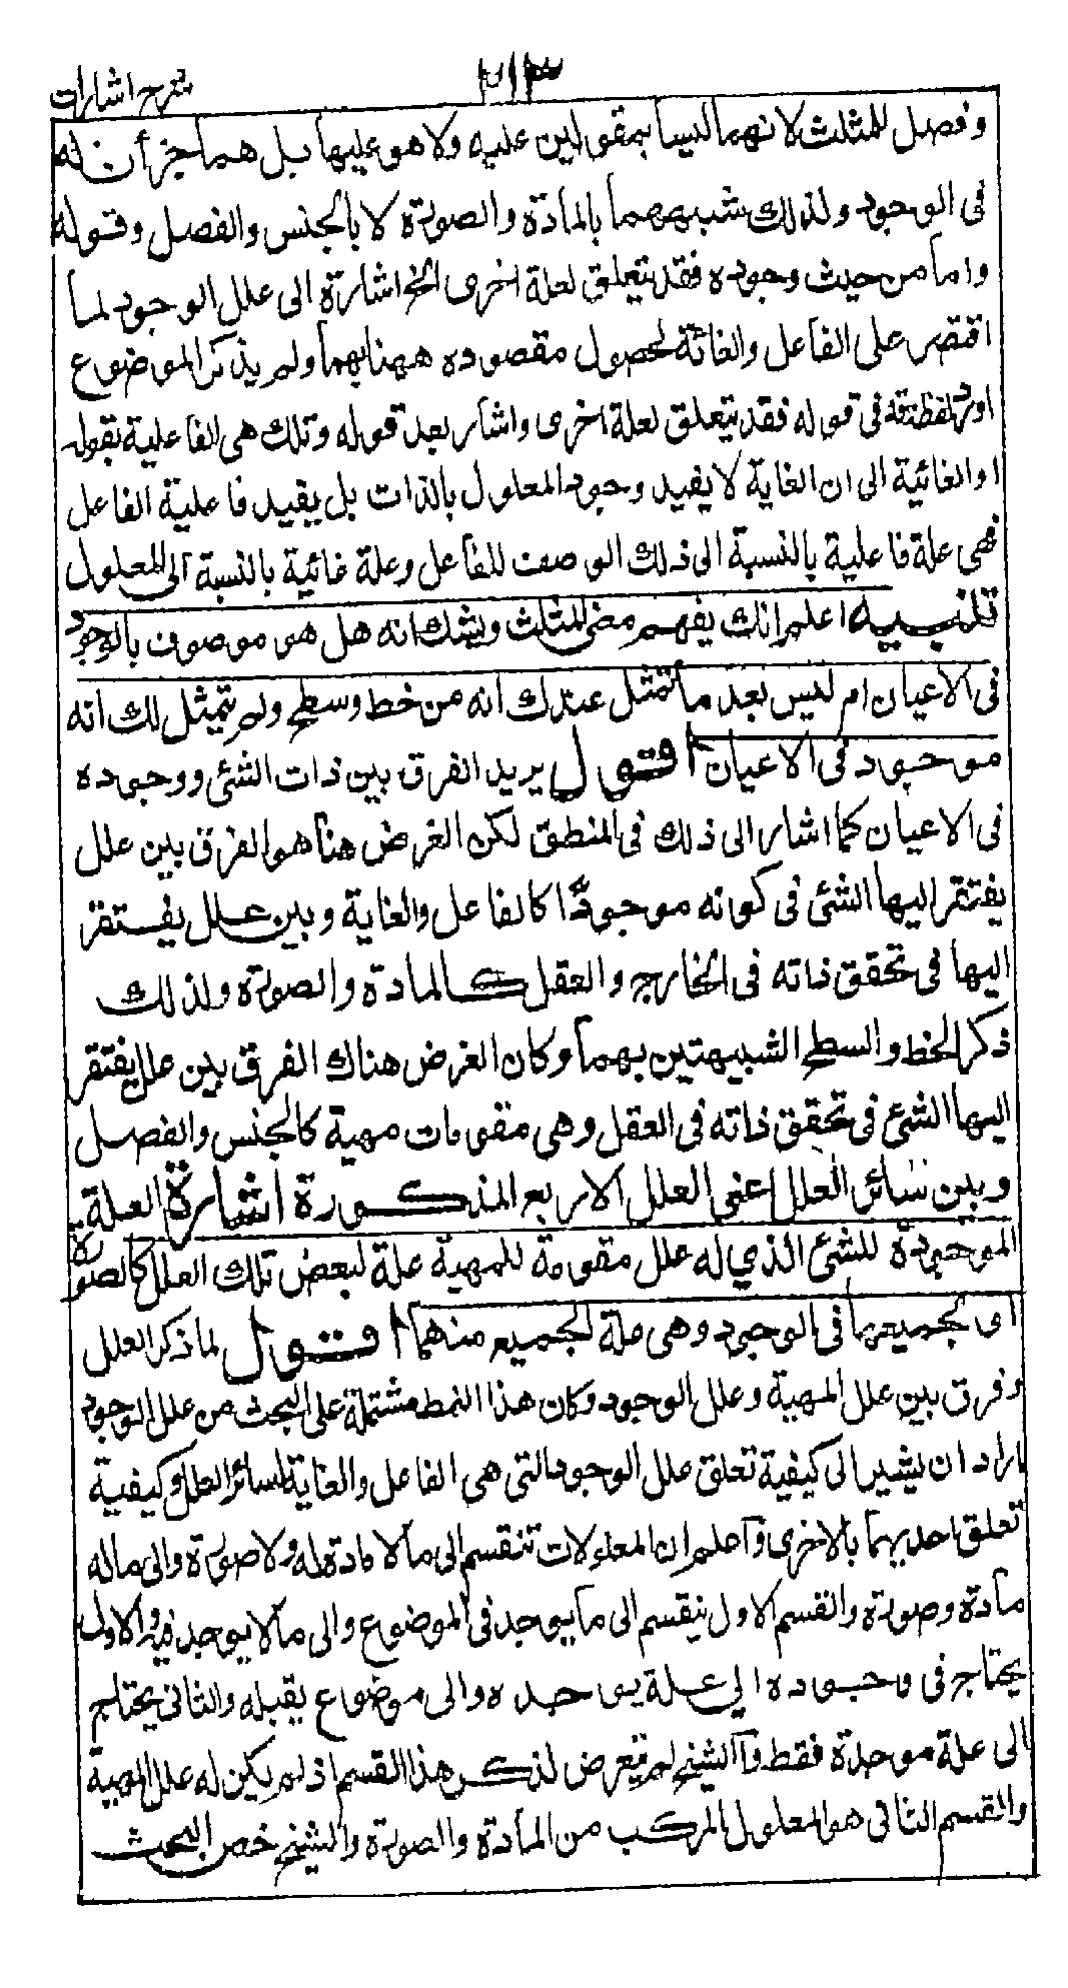 شرح اشارات
٢١٣
وفصل للمثلث لانهما ليسا بمقولين عليه ولا هو عليهما بل هما جزأن له
فى الوجود ولذلك شبههما بالمادة والصورة لا بالجنس والفصل وقوله
واما من حيث وجوده فقد يتعلق لعلة اخرى الخ اشارة الى علل الوجود لما
اقتصر على الفاعل والغائة لحصول مقصوده ههنا بهما ولم يذكر الموضوع
اورد لفظة قد فى قوله فقد يتعلق لعلة اخرى واشار بعد قوله وتلك هى الفاعلية بقوله
او الغائية الى ان الغاية لا يفيد وجود المعلول بالذات بل يفيد فاعلية الفاعل
فهى علة فاعلية بالنسبة الى ذلك الوصف للفاعل وعلة غائية بالنسبة الى المعلول
تنبيه اعلم انك يفهم معنى المثلث ويشك انه هل هو موصوف بالوجود
فى الاعيان ام ليس بعد ما تمثل عندك انه من خط وسطح ولم يتمثل لك انه
موجود فى الاعيان اقول يريد الفرق بين ذات الشئ ووجوده
فى الاعيان كما اشار الى ذلك فى المنطق لكن الغرض هنا هو الفرق بين علل
يفتقر اليها الشئ فى كونه موجودًا كالفاعل والغاية وبين علل يفتقر
اليها فى تحقق ذاته فى الخارج والعقل كالمادة والصورة ولذلك
ذكر الخط والسطح الشبيهتين بهما وكان الغرض هناك الفرق بين علل يفتقر
اليها الشئ فى تحقق ذاته فى العقل وهى مقومات مهية كالجنس والفصل
وبين سائر العلل اعنى العلل الاربع المذكورة اشارة العلة
الموجودة للشئ الذي له علل مقومة للمهية علة لبعض تلك العلل كالصورة
او لجميعها فى الوجود وهى علة لجميع منهما اقول لما ذكر العلل
وفرق بين علل المهية وعلل الوجود وكان هذا النمط مشتملة على البحث من علل الوجود
اراد ان يشير الى كيفية تعلق علل الوجود التى هى الفاعل والغاية لسائر العلل وكيفية
تعلق احديهما بالاخرى واعلم ان المعلولات تنقسم الى ما لا مادة له ولا صورة والى ماله
مادة وصورة والقسم الاول ينقسم الى ما يوجد فى الموضوع والى ما لا يوجد فيه والاول
يحتاج فى وجوده الي علة يوجده والى موضوع يقبله والثانى يحتاج
الى علة موجدة فقط والشيخ لم يتعرض لذكر هذا القسم اذ لم يكن له علل المهية
والقسم الثانى هو المعلول المركب من المادة والصورة والشيخ خص البحث